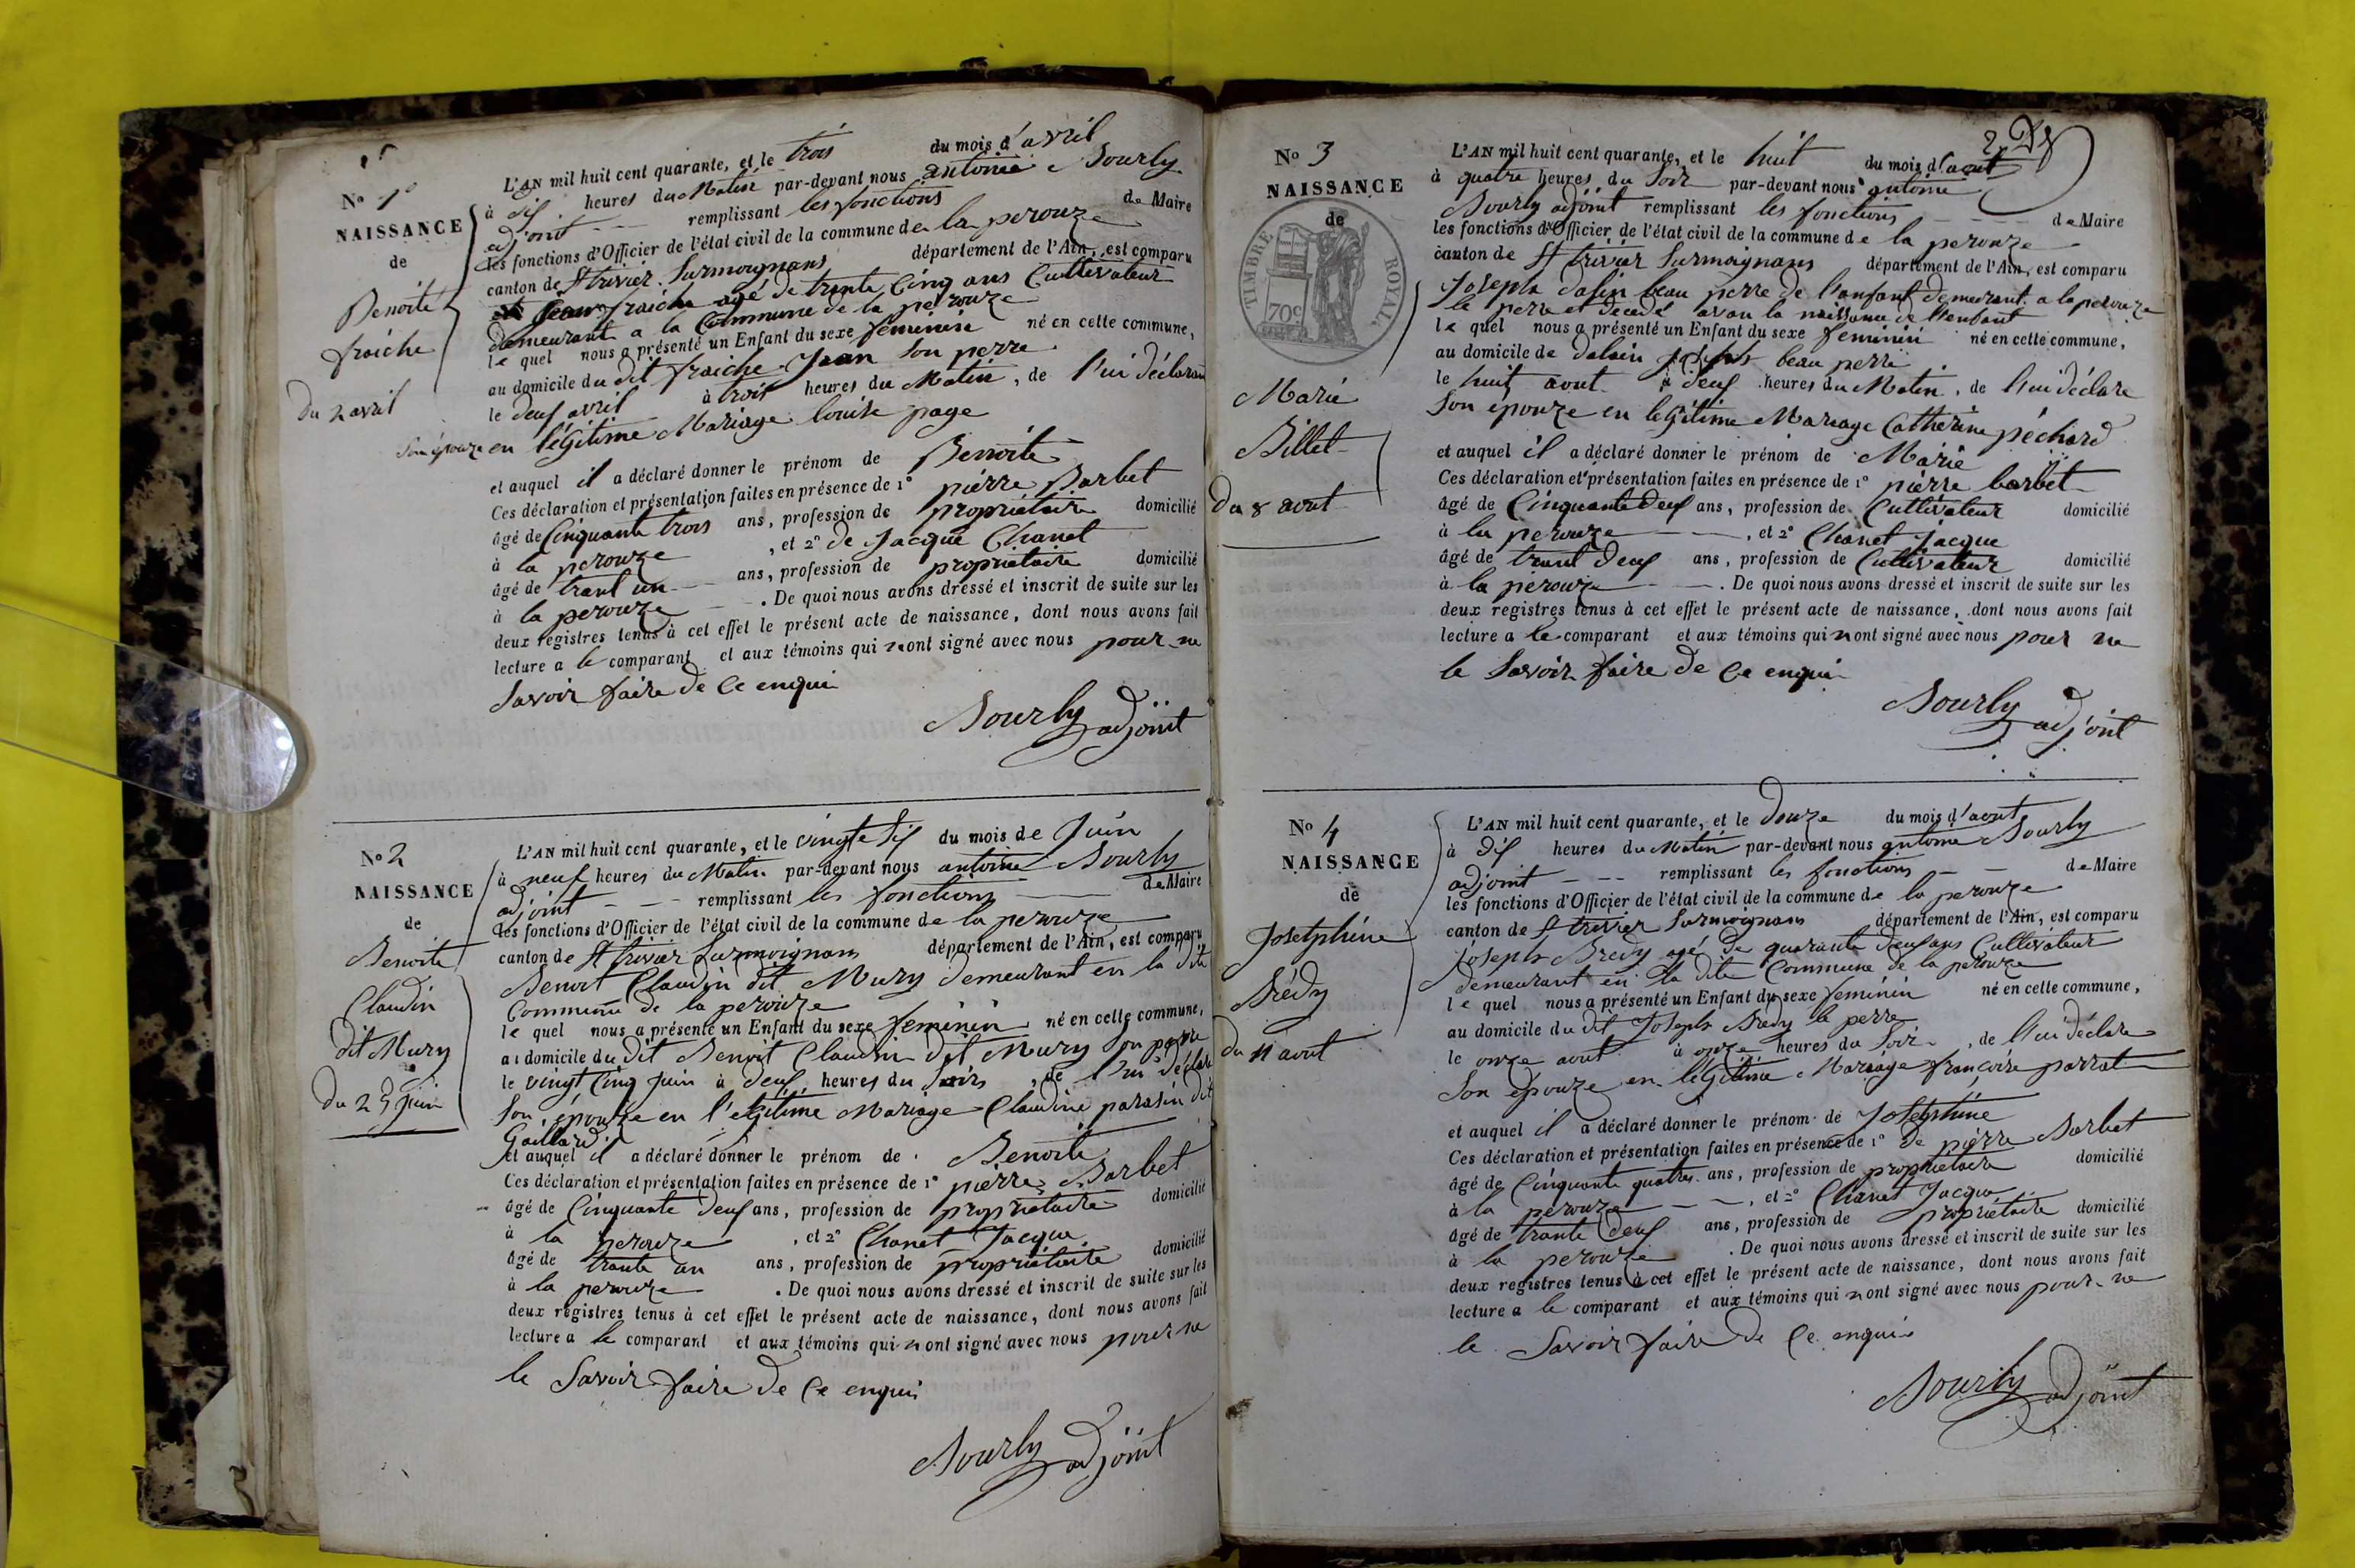 N° 1°
NAISSANCE
de
Benoite
fraiche
du 2 avril
L'AN mil huit cent quarante, et le trois du mois d'avril
à dix heures du Matin par-devant nous antoine Bourly
adjoint remplissant les fonctions de Maire
les fonctions d'Officier de l'état civil de la commune de la perouze
canton de St trivier Surmoignans département de l'Ain, est comparu
Jean fraiche agé de trente Cinq ans Cultivateur
demeurant a la Commune de la perouze
le quel nous a présenté un Enfant du sexe féminin né en cette commune,
au domicile du dit fraiche Jean Son perre
le deux avril à trois heures du Matin, de l'ui déclarant
Son épouze en légitime Mariage louise page
et auquel il a déclaré donner le prénom de Benoite
Ces déclaration et présentation faites en présence de 1° pierre Barbet
âgé de Cinquante trois ans, profession de propriétaire domicilié
à la perouze, et 2° de Jacque Chanet
âgé de trant un ans, profession de propriétaire domicilié
à la perouze. De quoi nous avons dressé et inscrit de suite sur les
deux registres tenus à cet effet le présent acte de naissance, dont nous avons fait
lecture a le comparant et aux témoins qui n'ont signé avec nous pour ne
Savoir faire de Ce enqui
Bourly adjoint
N° 2
NAISSANCE
de
Benoite
Claudin
dit Mury
du 25 juin
L'AN mil huit cent quarante, et le vingte Six du mois de Juin
à neuf heures du Matin par-devant nous antoine Bourly
adjoint remplissant les fonctions de Maire
les fonctions d'Officier de l'état civil de la commune de la perouze
canton de St trivier Surmoignans département de l'Ain, est comparu
Benoit Claudin dit Mury demeurant en la dite
Commune de la perouze
le quel nous a présenté un Enfant du sexe feminin né en cette commune,
au domicile du dit Benoit Claudin dit Mury Son perre
le vingt Cinq Juin à deux heures du Soir, de l'ui déclare
Son épouze en l'egitime Mariage Claudine parasin dit
Gaillard
et auquel il a déclaré donner le prénom de Benoite
Ces déclaration et présentation faites en présence de 1° pierre Barbet
âgé de Cinquante deux ans, profession de propriétaire domicilié
à la perouze, et 2° Chanet Jacque
âgé de trante un ans, profession de propriétaire domicilié
à la perouze. De quoi nous avons dressé et inscrit de suite sur les
deux registres tenus à cet effet le présent acte de naissance, dont nous avons fait
lecture a le comparant et aux témoins qui n'ont signé avec nous pour ne
le Savoir faire de Ce enqui
Bourly adjoint
2
N° 3
NAISSANCE
de
TIMBRE ROYAL
70c
Marie
Billet
du 8 aout
L'AN mil huit cent quarante, et le huit du mois d'aout
à quatre heures du Soir par-devant nous antoine
Bourly adjoint remplissant les fonctions de Maire
les fonctions d'Officier de l'état civil de la commune de la perouze
canton de St trivier Surmoignans département de l'Ain, est comparu
Joseph dalin beau perre de l'anfant demeurant a la perouze
le perre et decedé avan la naissance de l'enfant
le quel nous a présenté un Enfant du sexe feminin né en cette commune,
au domicile de dalain Joseph beau perre
le huit aout à deux heures du Matin, de l'ui déclare
Son épouze en legitime Mariage Catherine péchard
et auquel il a déclaré donner le prénom de Marie
Ces déclaration et présentation faites en présence de 1° pierre barbet
âgé de Cinquante deux ans, profession de Cultivateur domicilié
à la perouze, et 2° Chanet Jacque
âgé de trant deux ans, profession de Cultivateur domicilié
à la perouze. De quoi nous avons dressé et inscrit de suite sur les
deux registres tenus à cet effet le présent acte de naissance, dont nous avons fait
lecture a le comparant et aux témoins qui n'ont signé avec nous pour ne
le Savoir faire de Ce enqui
Bourly adjoint
N° 4
NAISSANCE
de
Josetphine
Brédy
du 11 aout
L'AN mil huit cent quarante, et le Douze du mois d'aout
à dix heures du Matin par-devant nous antoine Bourly
adjoint remplissant les fonctions de Maire
les fonctions d'Officier de l'état civil de la commune de la perouze
canton de St trivier Surmoignans département de l'Ain, est comparu
joseph Brédy agé de quarante deux ans Cultivateur
demeurant en la dite Commune de la perouze
le quel nous a présenté un Enfant du sexe feminin né en cette commune,
au domicile du dit Joseph Brédy le perre
le onze aout à onze heures du Soir, de l'ui déclare
Son épouze en légitime Mariage françoise parrat
et auquel il a déclaré donner le prénom de Josetphine
Ces déclaration et présentation faites en présence de 1° de pierre Barbet
âgé de Cinquante quatre ans, profession de propriétaire domicilié
à la perouze, et 2° Chanet Jacque
âgé de trante deux ans, profession de propriétaire domicilié
à la perouze. De quoi nous avons dressé et inscrit de suite sur les
deux registres tenus à cet effet le présent acte de naissance, dont nous avons fait
lecture a le comparant et aux témoins qui n'ont signé avec nous pour ne
le Savoir faire de Ce enqui
Bourly adjoint